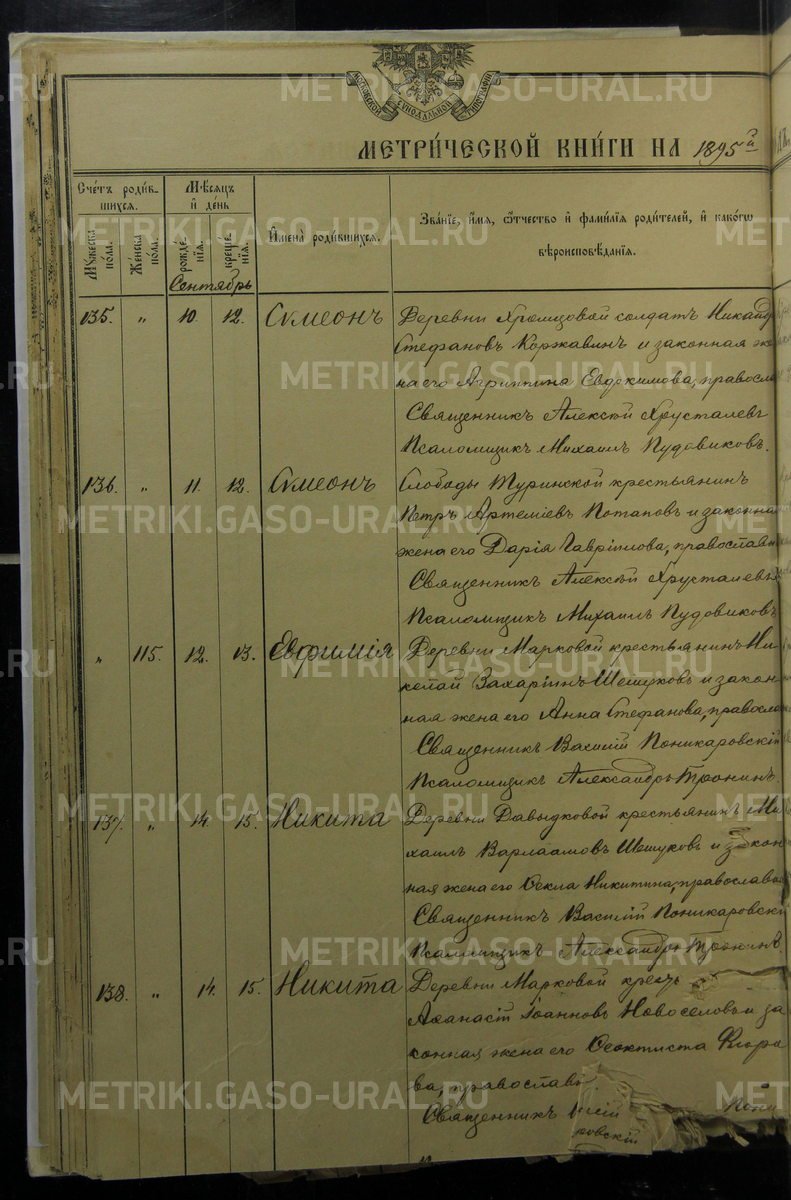 МОСКОВСКОЙ СѴНОДАЛЬНОЙ ТИПОГРАФІИ
МЕТРИ́ЧЕСКОЙ КНИ́ГИ НА 1895й
Счетъ роди́вшихся.
Мꙋжеска по́ла.
Же́нска по́ла.
Мѣсяцъ и день
рожде́нїѧ.
креще́нїѧ.
Сентябрь
И҆мена̀ роди́вшихся.
Зва́нїе, и҆́мѧ, ѻ҆́тчество и҆ фами́лїѧ роди́телей, и҆ како́гѡ
вѣроисповѣ́данїѧ.
135. „ 10. 12. Сѵмеонъ Деревни Хромцовой солдатъ Никандр
Стефановъ Коржавинъ и законная же
на его Агриппина Евдокимова, правосла
Священникъ Алексій Хрусталевъ
Псаломщикъ Михаилъ Пудовиковъ.
136. „ 11. 12. Сѵмеонъ Слободы Туринской крестьянинъ
Петръ Артеміевъ Потаповъ и законна
жена его Дарія Гавріилова, православн
Священникъ Алексій Хрусталевъ
Псаломщикъ Михаилъ Пудовиковъ
„ 115. 12. 13. Евфимія Деревни Марковой крестьянинъ Ни
колай Захаріинъ Шешуковъ и закон
ная жена его Анна Стефанова, правосла
Священникъ Василій Поникаровскій
Псаломщикъ Александръ Тронинъ.
137. „ 14. 15. Никита Деревни Давыдковой крестьянинъ Ми
хаилъ Варлаамовъ Шешуковъ и закон
ная жена его Ѳекла Никитина, православн
Священникъ Василій Поникаровскі
Псаломщикъ Александръ Тронинъ.
138. „ 14. 15. Никита Деревни Марковой крест
Аѳанасій Іоанновъ Новоселовъ и за
конная жена его Ѳеоктиста
ва, православ
Священникъ Пони
ровскій
METRIKI.GASO-URAL.RU